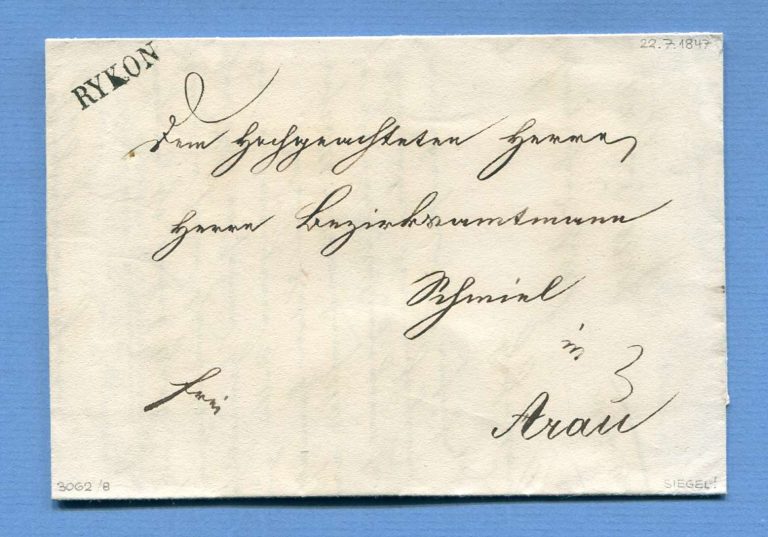 RYKON
22.7.1847
Dem Hochgeachteten Herrn
Herrn Bezirksamtmann
Schmiel
in
Arau
frei
3062/8
SIEGEL!